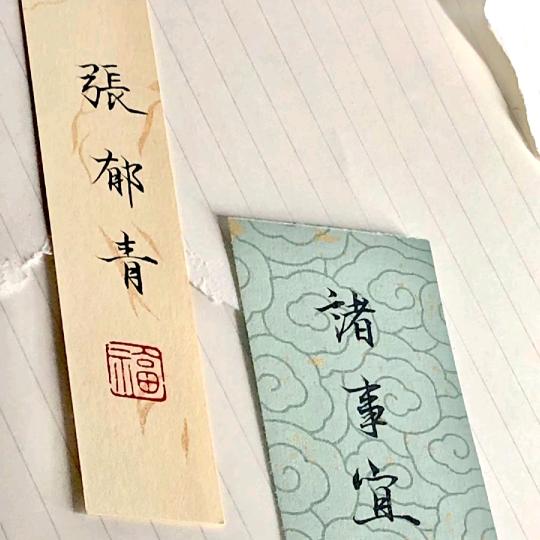 張郁青
福
諸事宜